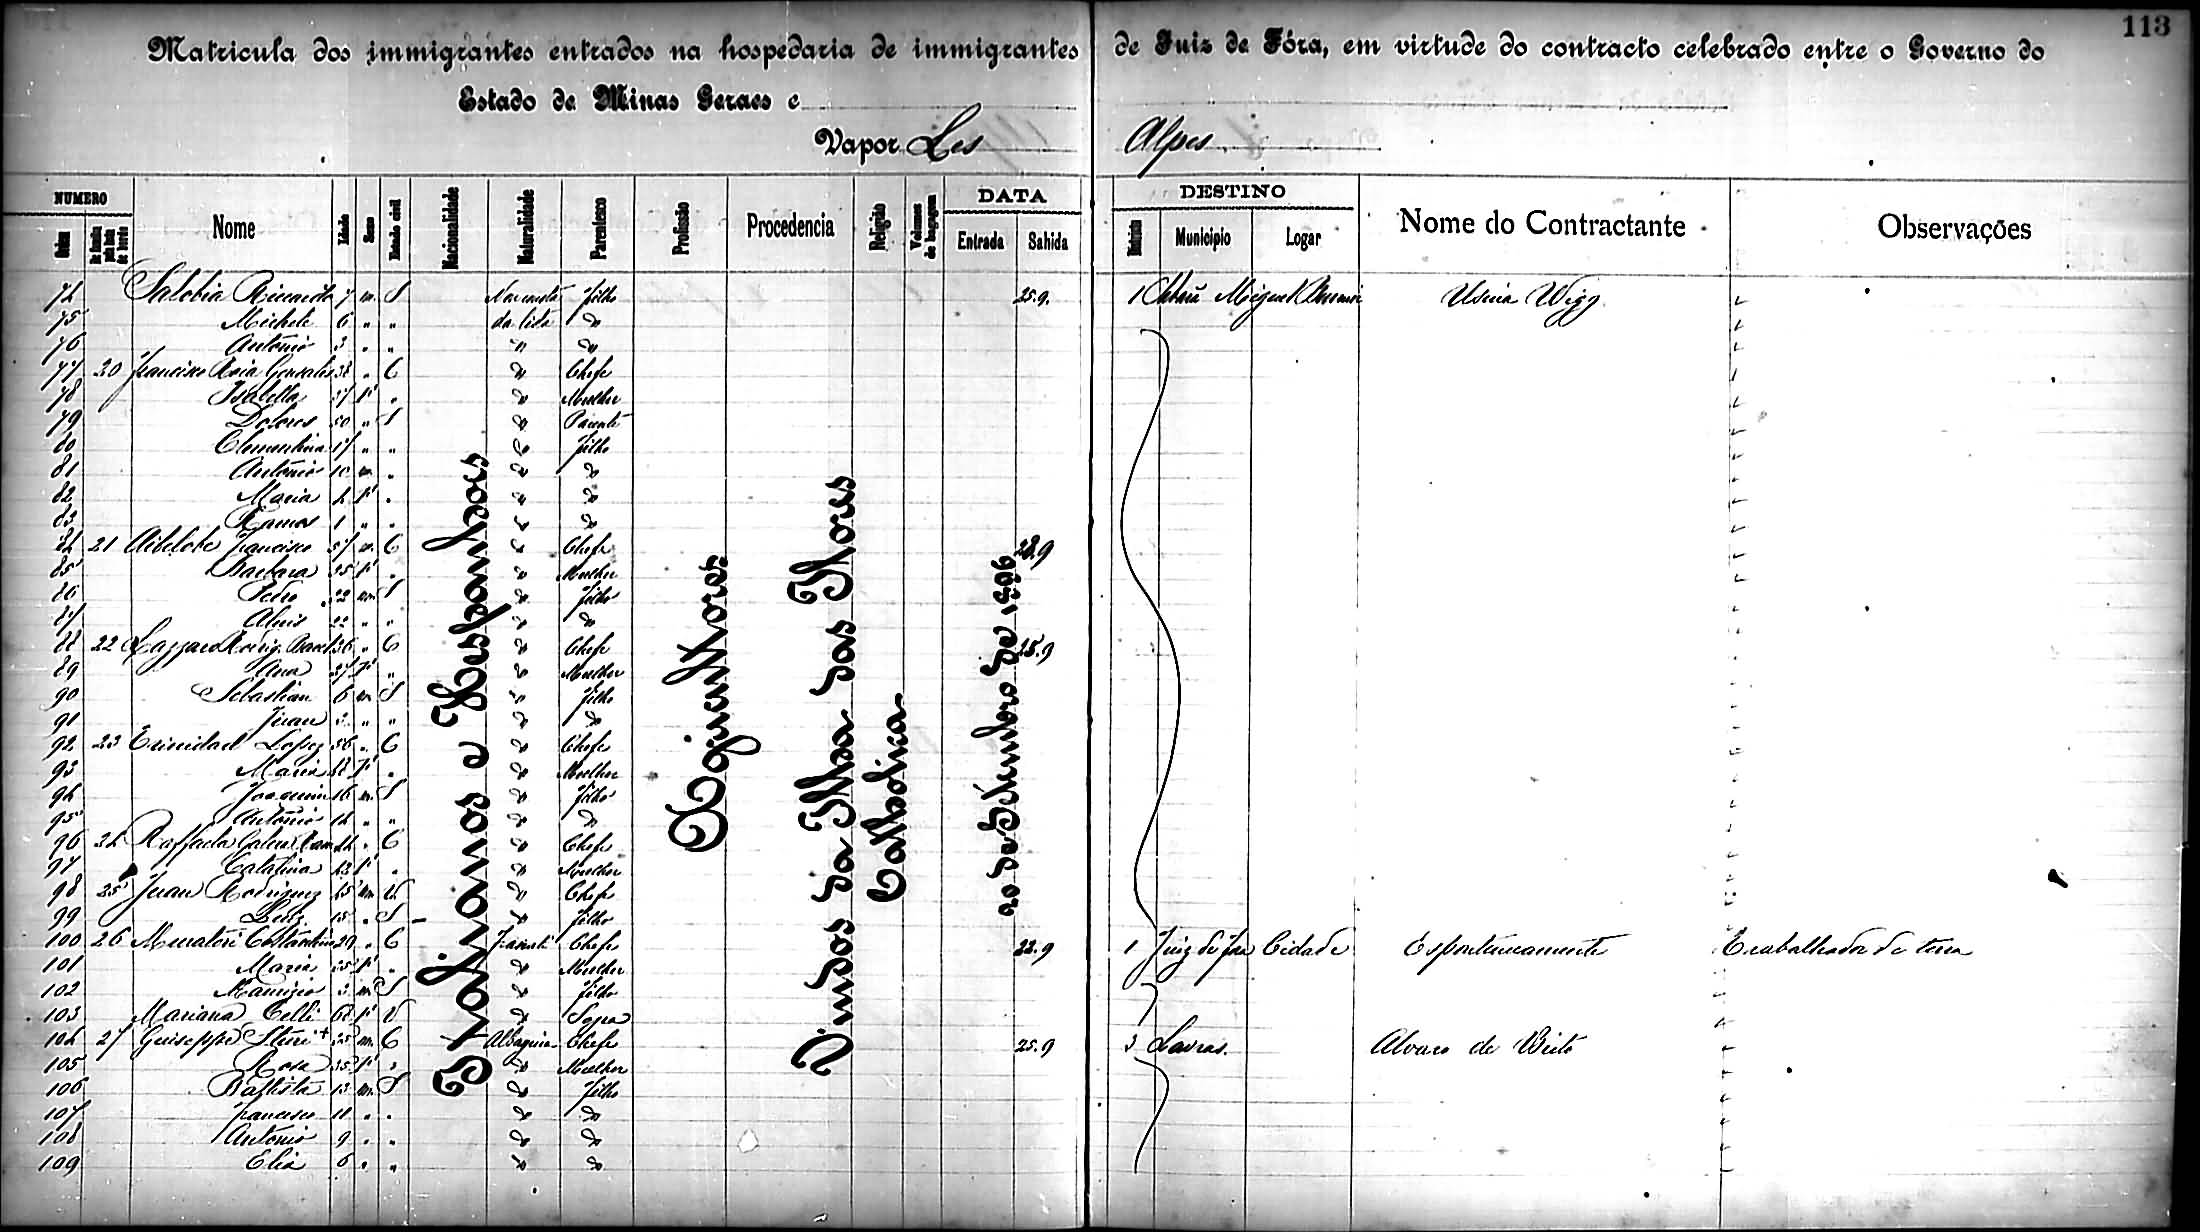 113
Matricula dos immigrantes entrados na hospedaria de immigrantes de Juiz de Fóra, em virtude do contracto celebrado entre o Governo do
Estado de Minas Geraes e
Vapor Les Alpes
NUMERO Nome Idade Sexo Estado civil Nacionalidade Naturalidade Parentesco Profissão Procedencia Religião Volumes de bagagem DATA DESTINO Nome do Contractante Observações
Ordem de familia pela lista de bordo Entrada Sahida Districto Municipio Logar
74 7 m. S filho 25.9. 1 Miguel Burnier Usina Wigg
75 Michele 6 " " do
76 Antonio 3 " " " do
77 20 Francisco Gonzales 38 " C do Chefe
78 Isabella 37 F " do Mulher
79 Dolores 50 " S do Parente
80 Clementina 17 " " do filho
81 Antonio 10 m. " do do
82 Maria 4 F " " do
83 Ramos 1 " " do do
84 21 Francisco 57 m. C do Chefe 28.9
85 Barbara 55 F " do Mulher
86 Pedro 22 m. S do filho
87 22 " " do do
88 22 Lazzaro Rodrig. 36 " C do Chefe 25.9
89 Ana 37 F " do Mulher
90 Sebastian 6 m. S do filho
91 Juan " " do do
92 23 Trinidad Lopez 56 " C do Chefe
93 Maria 48 F " do Mulher
94 Joaquim 16 m. S do filho
95 Antonio 14 " " do do
96 24 Raffaela 44 " C do Chefe
97 Catalina 43 F " do Mulher
98 25 Juan Rodriguez 45 m. V do Chefe
99 Luiz 15 " S do filho
100 26 Muratori Costantino 29 " C Chefe 22.9 1 Juiz de Fora Cidade Espontaneamente Trabalhador de terra
101 Maria 25 F " do Mulher
102 Maurizio 3 m. S do filho
103 Mariana Celli 64 F V do Sogra
104 27 Guiseppe + 35 m. C Chefe 25.9 3 Lavras. Alvaro de Brito
105 Rosa 35 F " do Mulher
106 Battista 13 m. S do filho
107 Francesco 11 " " do do
108 Antonio 9 " " do do
109 Elia 6 " " do do
Italianos e Hespanhoes
Agricultores
Vindos da Ilha das Flores
Catholica
20 de Setembro de 1896